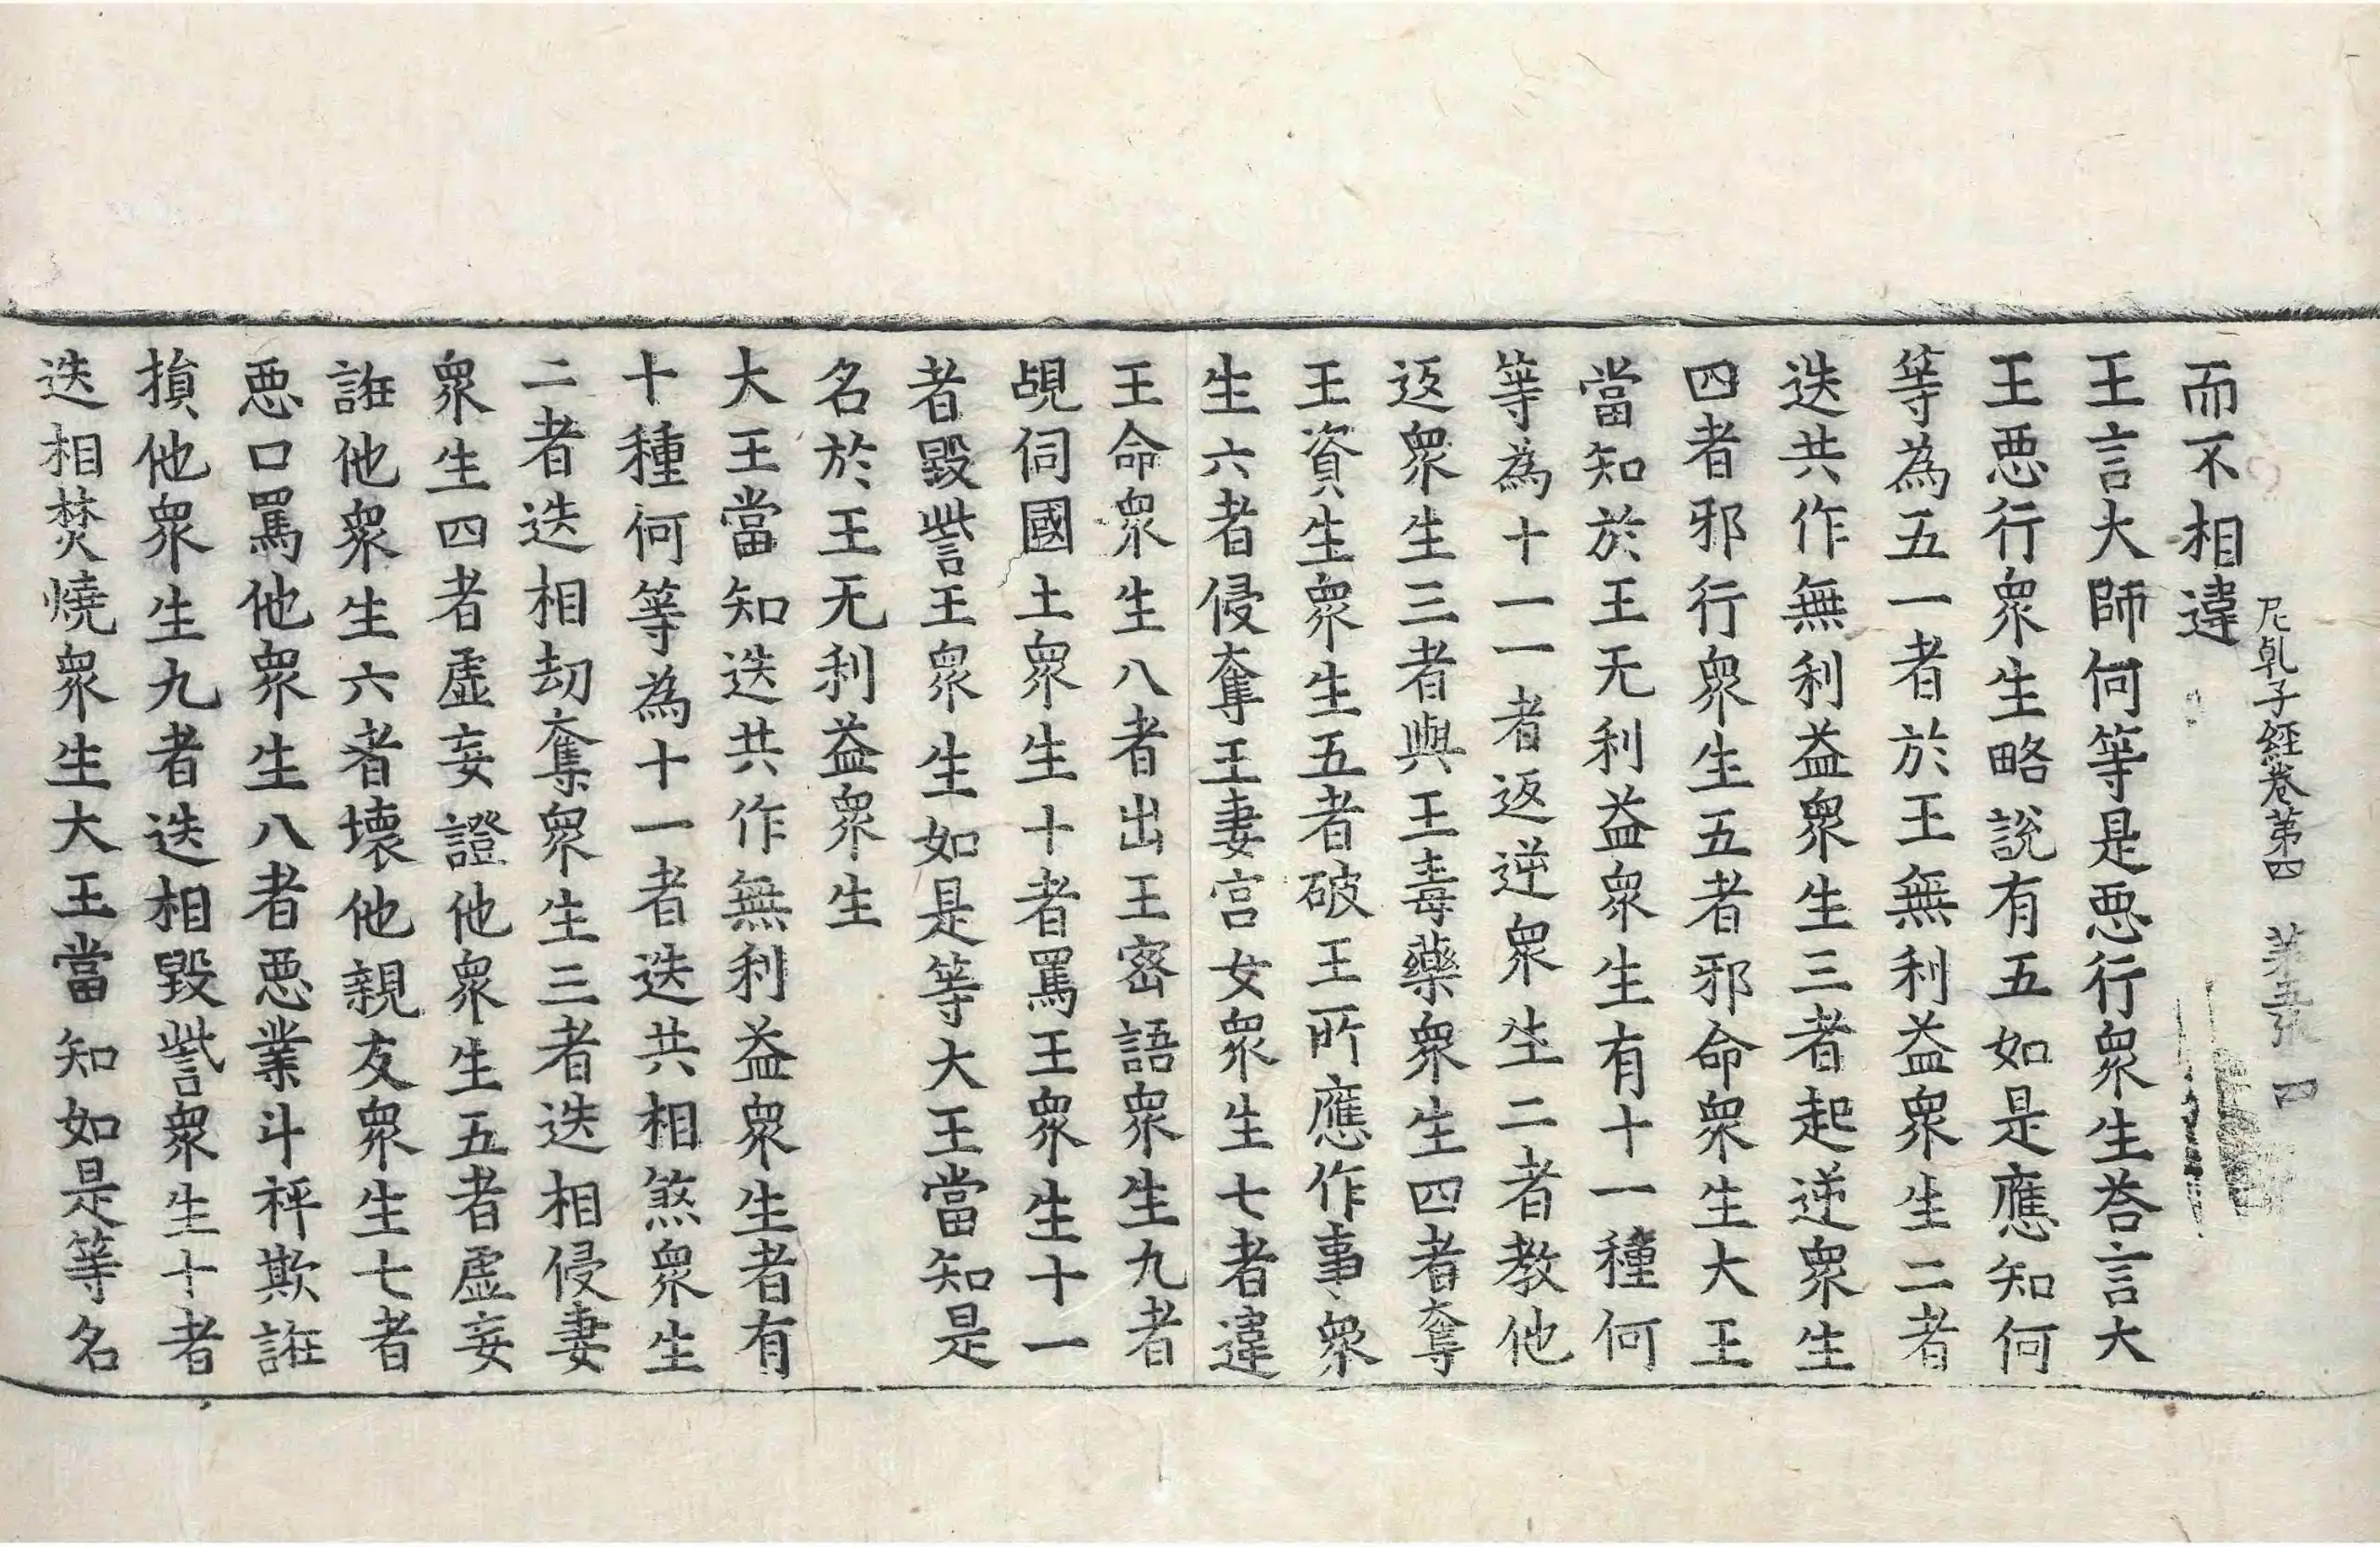 尼乹子經卷第四　第五張　四
而不相違
王言大師何等是惡行衆生荅言大
王惡行衆生略說有五如是應知何
等為五一者於王無利益衆生二者
迭共作無利益衆生三者起逆衆生
四者邪行衆生五者邪命衆生大王
當知於王无利益衆生有十一種何
等為十一一者返逆衆生二者教他
返衆生三者與王毒藥衆生四者奪
王資生衆生五者破王所應作事衆
生六者侵奪王妻宫女衆生七者違
王命衆生八者出王密語衆生九者
覘伺國土衆生十者罵王衆生十一
者毀呰言王衆生如是等大王當知是
名於王无利益衆生
大王當知迭共作無利益衆生者有
十種何等為十一者迭共相煞衆生
二者迭相劫奪衆生三者迭相侵妻
衆生四者虛妄證他衆生五者虛妄
誑他衆生六者壞他親友衆生七者
惡口罵他衆生八者惡業斗秤欺誑
損他衆生九者迭相毀訾衆生十者
迭相焚燒衆生大王當知如是等名